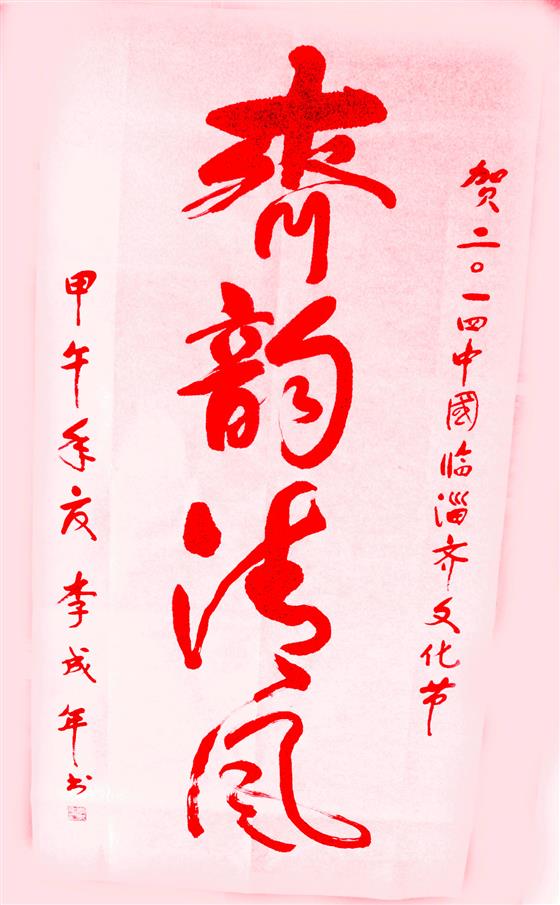 贺二〇一四中國临淄齐文化节
齊韵清风
甲午年夏 李成年书